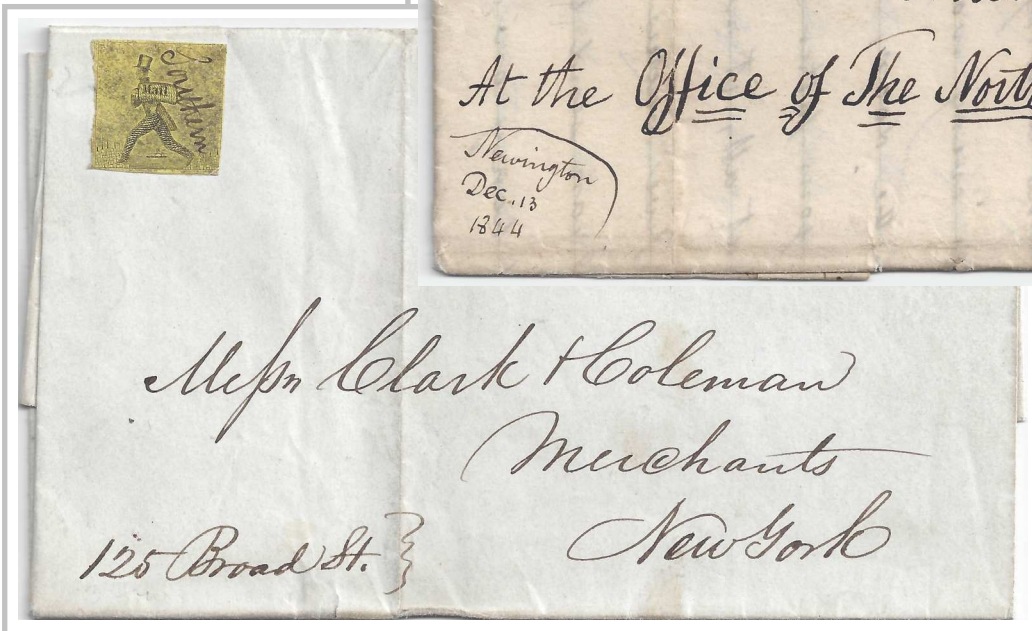 At the Office of The
Newington
Dec. 13
1844
Mail
Messrs Clark & Coleman
Merchants
New York
125 Broad St.